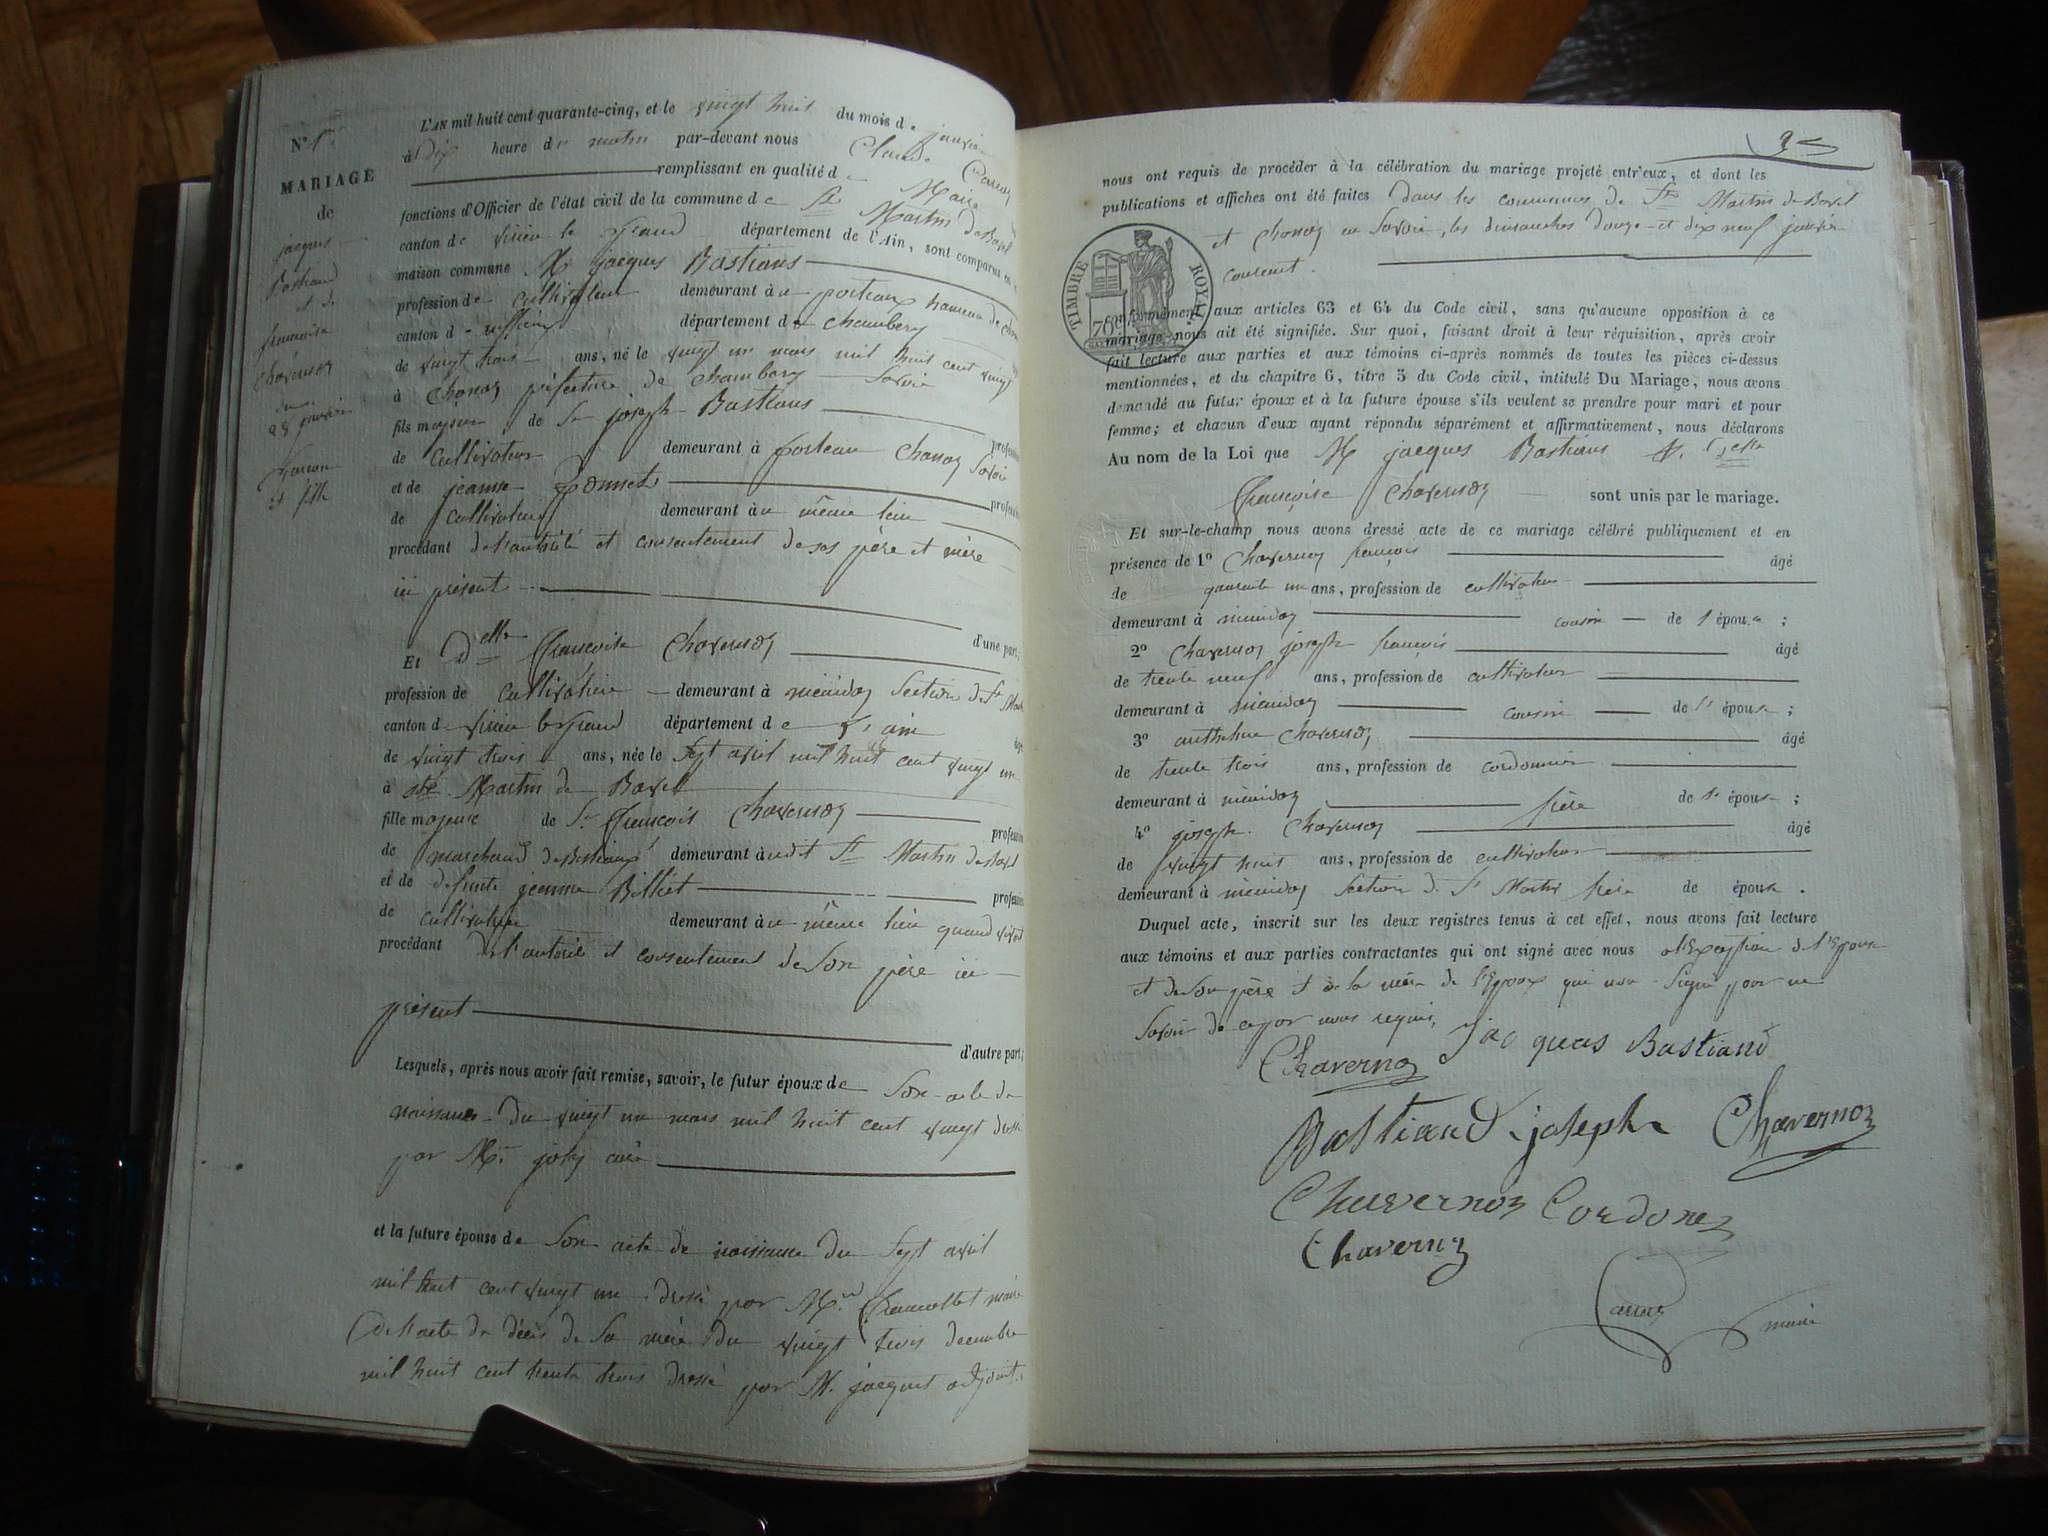 N° 1er
MARIAGE
de
jacques
Bastiand
et de
françoise
Chavernoz
du
28 janvier
garcon
et fille
L'AN mil huit cent quarante-cinq, et le vingt huit du mois de janvier
à Dix heure du matin par-devant nous Claude Carraz
remplissant en qualité de Maire
fonctions d'Officier de l'état civil de la commune de St Martin de Bavel
canton de virieu le grand département de l'Ain, sont comparus en
maison commune M jacques Bastians
profession de cultivateur demeurant à porteau hameau de
canton d ruffieux département de chambery
de vingt trois ans, né le vingt un mars mil huit cent vingt
à Chanaz préfecture de chambery Savoie
fils majeur de Sr joseph Bastians profession
de cultivateur demeurant à porteau Chanaz Savoie
et de jeanne profession
de cultivateur demeurant à u même lieu
procédant de l'autorité et consentement de ses père et mère
ici présent
d'une part,
Et Delle françoise Chavernoz
profession de cultivatrice demeurant à section de St Martin
canton d virieu le grand département de l'ain
de vingt trois ans, née le sept avril mil huit cent vingt un
à St Martin de Bavel
fille majeure de Sr françois Chavernoz profession
de marchand de Bestiaux demeurant à udit St Martin de Bavel
et de défunte jeanne Billiet profession
de cultivatrice demeurant à u même lieu quand vivait
procédant de l'autorité et consentement de son père ici
présent
d'autre part;
Lesquels, après nous avoir fait remise, savoir, le futur époux de son acte de
naissance du vingt un mars mil huit cent vingt dressé
par Mr curé
et la future épouse de son acte de naissance du sept avril
mil huit cent vingt un dressé par Mr maire
de l'acte de décès de sa mère du vingt trois decembre
mil huit cent trente trois dressé par M. jacquet adjoint.
nous ont requis de procéder à la célébration du mariage projeté entr'eux, et dont les
publications et affiches ont été faites dans les communes de St Martin de Bavel
et Chanaz en Savoie, les dimanches douze et dix neuf janvier
courent.
TIMBRE ROYAL
70c
conformément aux articles 63 et 64 du Code civil, sans qu'aucune opposition à ce
mariage nous ait été signifiée. Sur quoi, faisant droit à leur réquisition, après avoir
fait lecture aux parties et aux témoins ci-après nommés de toutes les pièces ci-dessus
mentionnées, et du chapitre 6, titre 5 du Code civil, intitulé Du Mariage, nous avons
demandé au futur époux et à la future épouse s'ils veulent se prendre pour mari et pour
femme; et chacun d'eux ayant répondu séparément et affirmativement, nous déclarons
Au nom de la Loi que M jacques Bastians & Delle
françoise Chavernoz sont unis par le mariage.
Et sur-le-champ nous avons dressé acte de ce mariage célébré publiquement et en
présence de 1° Chavernoz françois âgé
de quarente un ans, profession de cultivateur
demeurant à cousin de l'épouse ;
2° Chavernoz joseph françois âgé
de trente neuf ans, profession de cultivateur
demeurant à cousin de l'épouse ;
3° anthelme Chavernoz âgé
de trente trois ans, profession de cordonnier
demeurant à frère de l'épouse ;
4° joseph Chavernoz âgé
de vingt huit ans, profession de cultivateur
demeurant à section de St Martin frère de épouse .
Duquel acte, inscrit sur les deux registres tenus à cet effet, nous avons fait lecture
aux témoins et aux parties contractantes qui ont signé avec nous à l'exception de l'Epouse
et de son père et de la mère de l'Epoux qui non signé pour ne
savoir de ce par nous requis.
Chavernoz jacques Bastiand
Bastiand joseph Chavernoz
Chavernoz Cordonez
Chavernoz
Carraz maire